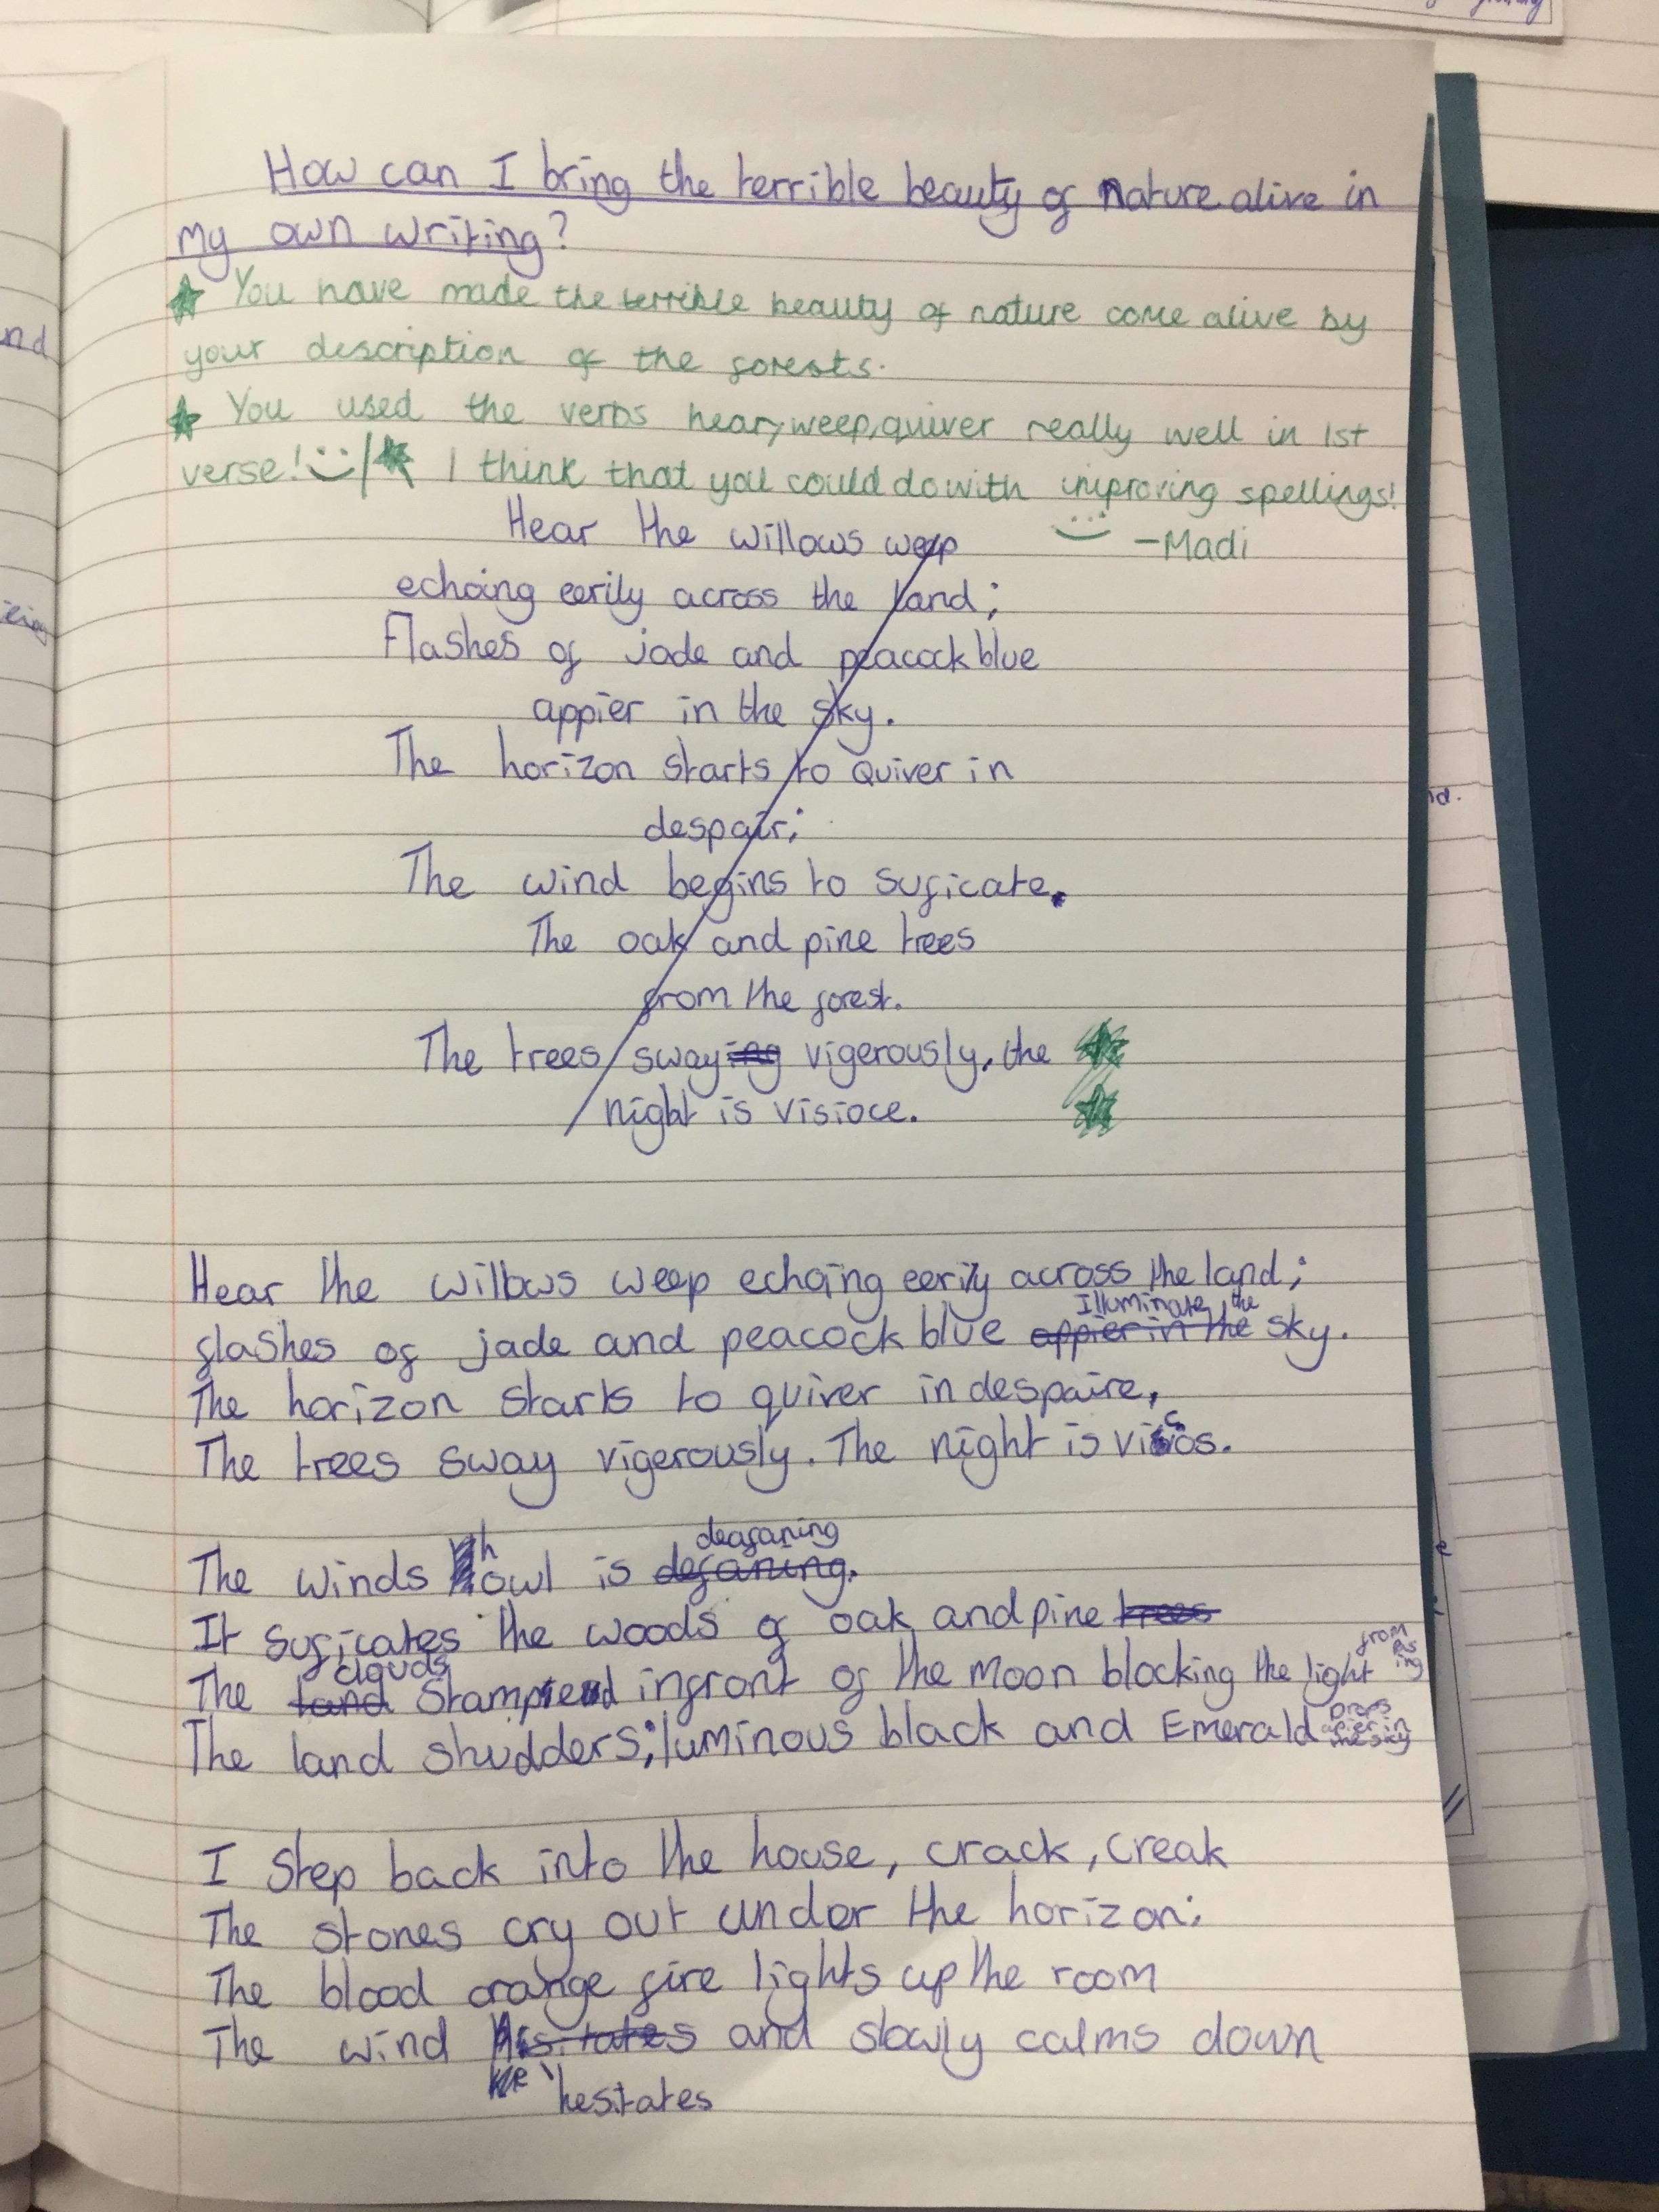 How can I bring the terrible beauty of nature alive in
my own writing?
You have made the terrible beauty of nature come alive by
your description of the forests.
You used the verbs hear, weep, quiver really well in 1st
verse! I think that you could do with improving spellings!
-Madi
Hear the willows weep
echoing eerily across the land;
Flashes of jade and peacock blue
appier in the sky.
The horizon starts to quiver in
despair;
The wind begins to suficate.
The oak and pine trees
from the forest.
The trees swaying vigerously, the
night is visioce.
Hear the willows weep echoing eerily across the land;
Illuminate the
flashes of jade and peacock blue appier in the sky.
The horizon starts to quiver in despaire,
The trees sway vigerously. The night is vicios.
deafaning
The winds howl is defaning.
It suficates the woods of oak and pine trees
clouds
from
The land Stampteud infront of the moon blocking the light
Drops
The land shudders; luminous black and Emerald
I step back into the house, crack, creak
The stones cry out under the horizon;
The blood orange fire lights up the room
The wind hesitates and slowly calms down
hesitates